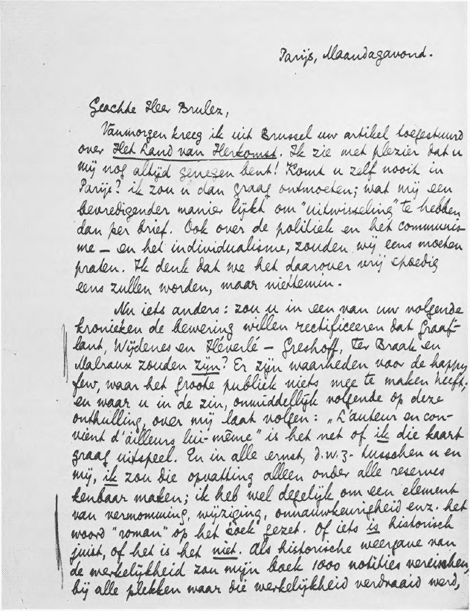 Parijs, Maandagavond.
Geachte Heer Brulez,
Vanmorgen kreeg ik uit Brussel uw artikel toegestuurd
over Het Land van Herkomst. Ik zie met plezier dat u
mij nog altijd genegen bent! Komt u zelf nooit in
Parijs? ik zou u dan graag ontmoeten; wat mij een
bevredigender manier lijkt om "uitwisseling" te hebben
dan per brief. Ook over de politiek en het communis-
me – en het individualisme, zouden wij eens moeten
praten. Ik denk dat we het daarover vrij spoedig
eens zullen worden, maar niettemin.
Nu iets anders: zou u in een van uw volgende
kronieken de bewering willen rectificeeren dat Graaf-
lant, Wijdenes en Héverlé – Greshoff, Ter Braak en
Malraux zouden zijn? Er zijn waarheden voor de happy
few, waar het groote publiek niets mee te maken heeft;
en waar u in de zin, onmiddellijk volgende op deze
onthulling, over mij laat volgen: „L'auteur en con-
vient d'ailleurs lui-même" is het net of ik die kaart
graag uitspeel. En in alle ernst, d.w.z. tusschen u en
mij, ik zou die opvatting alleen onder alle reserves
kenbaar maken; ik heb wel degelijk om een element
van vermomming, wijziging, onnauwkeurigheid enz. het
woord "roman" op het boek gezet. Of iets is historisch
juist, of het is het niet. Als historische weergave van
de werkelijkheid zou mijn boek 1000 notities vereischen,
bij alle plekken waar die werkelijkheid verdraaid werd,